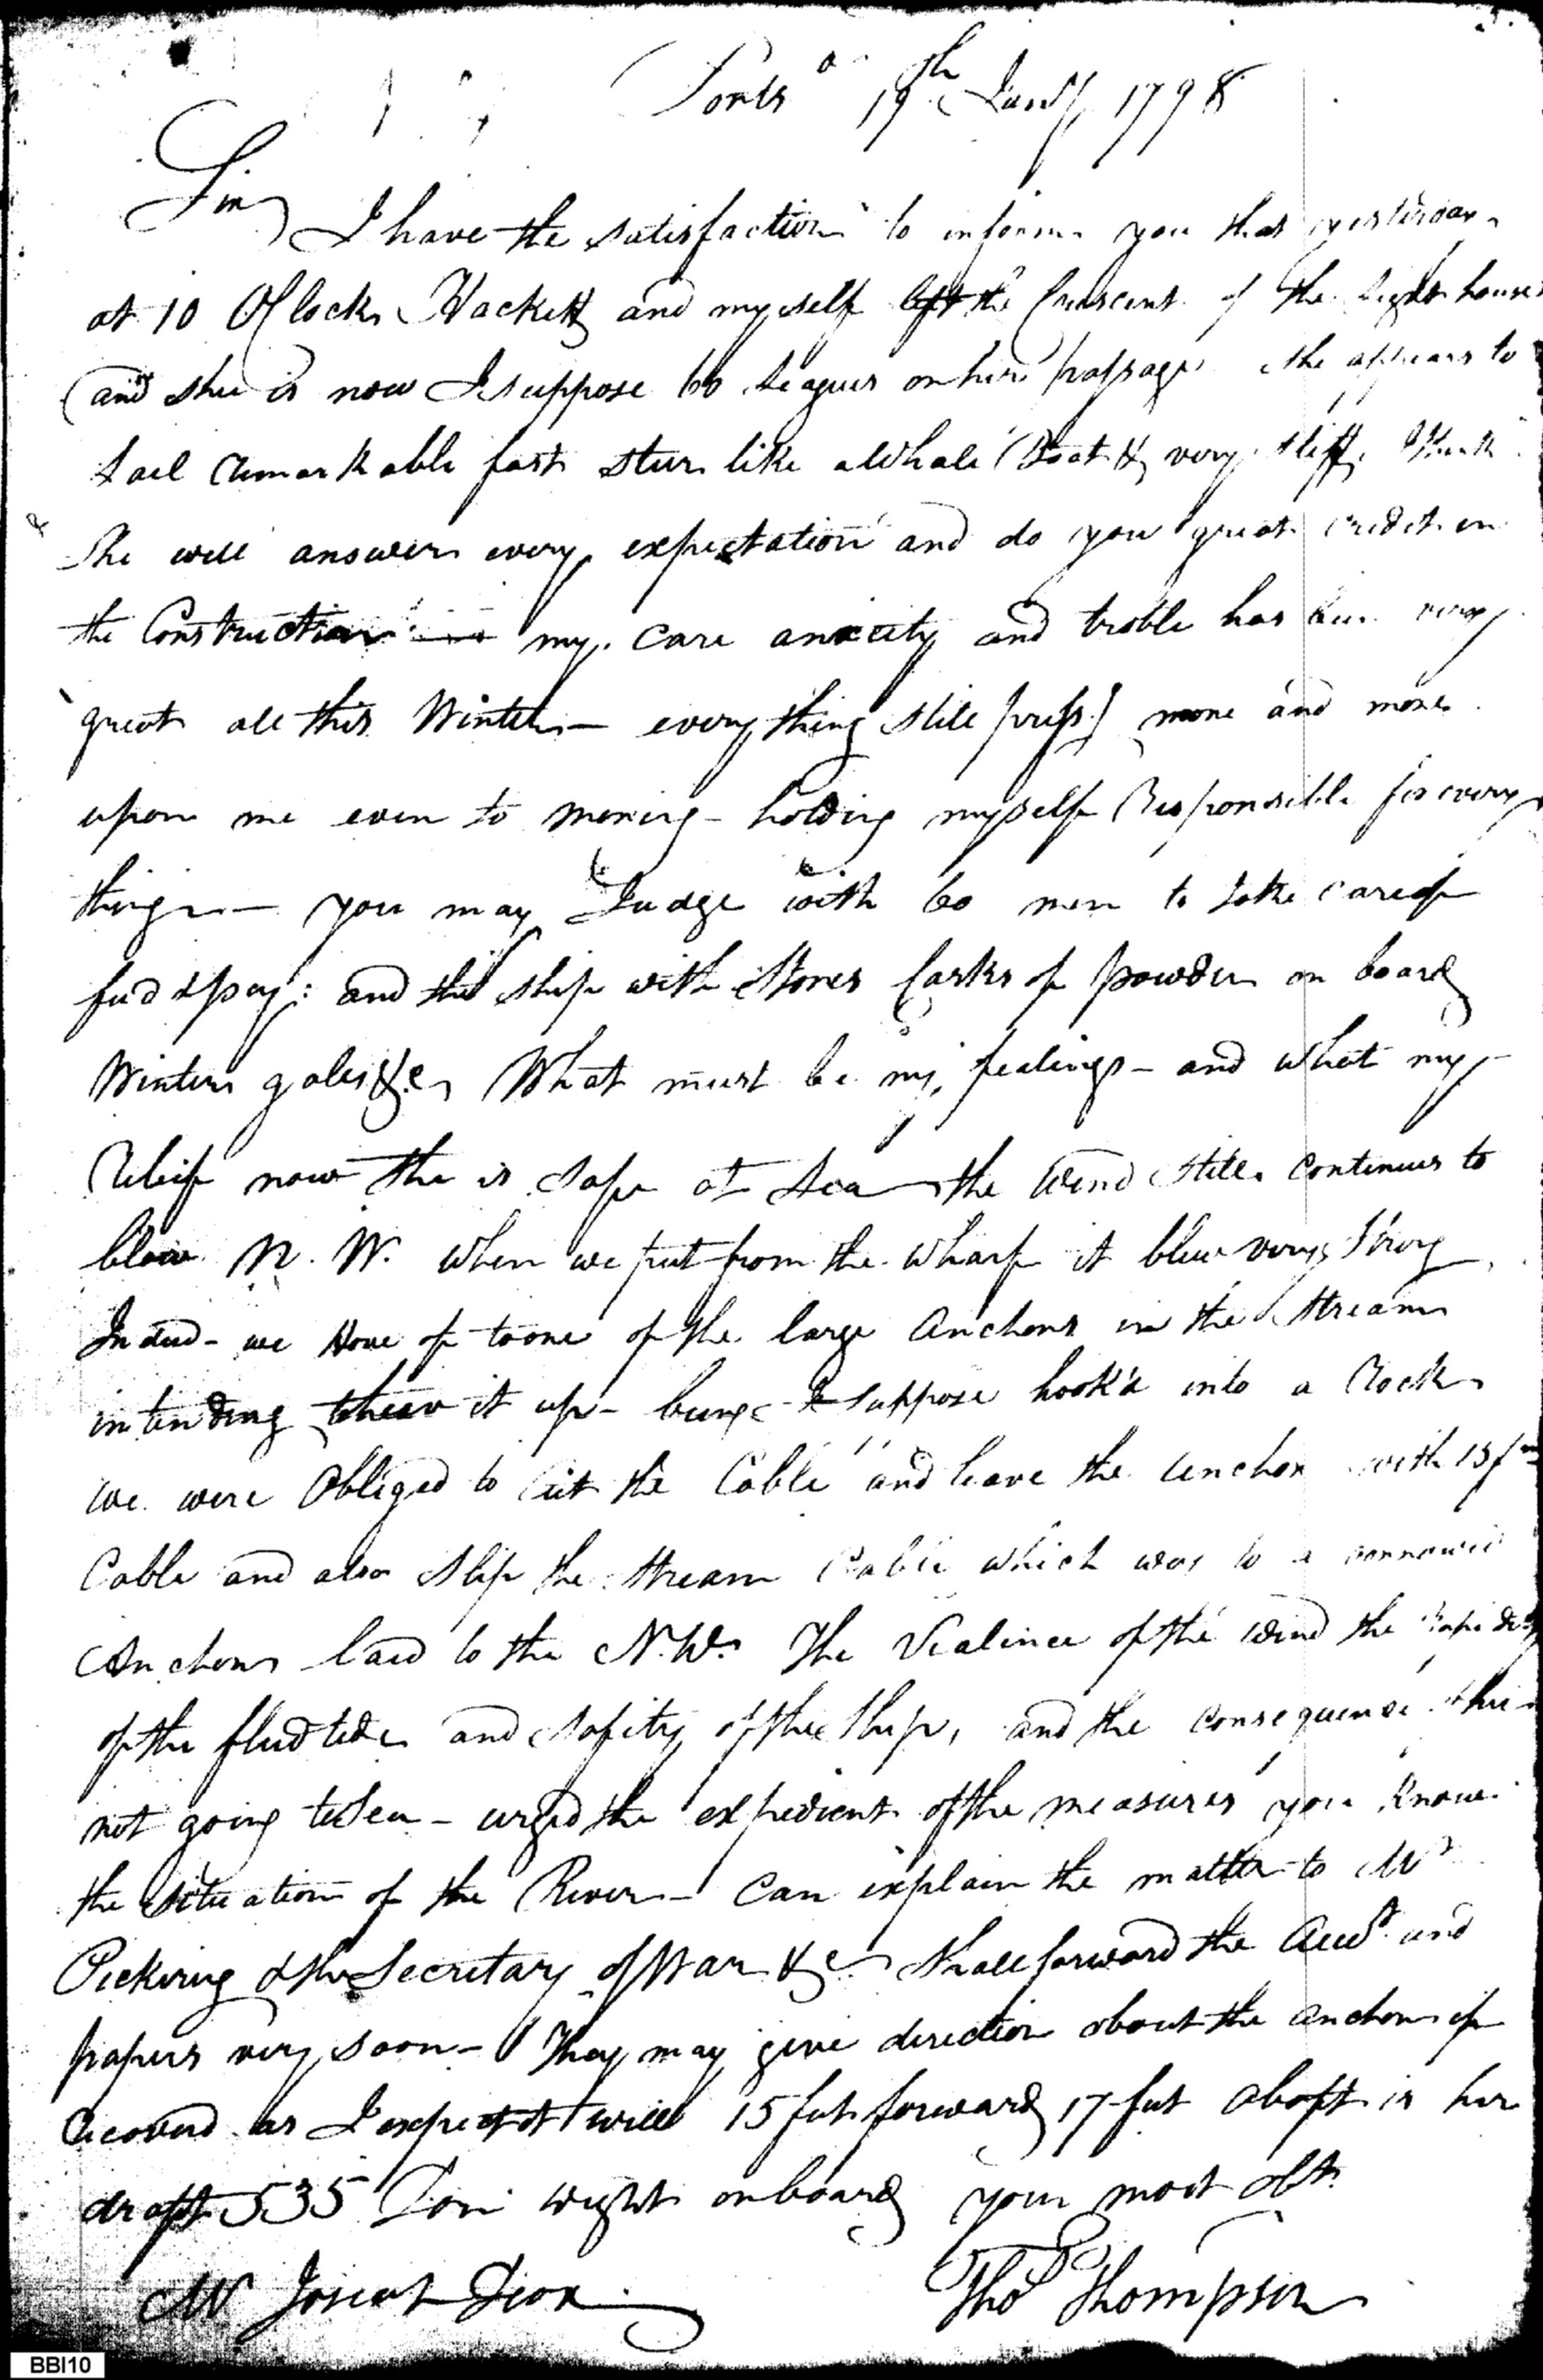 Ports.o 19th Jany 1798
Sir
I have the satisfaction to inform you that yesterday
at 10 OClock Hackett and myself left the Crescent of the Light house
and shee is now I suppose 60 Leagues on hir passage she appears to
Sail Remarkable fast steer like a Whale Boat & very stiff, think
& She will answer every expectation and do you great credit in
the Construction — my care anxiety and troble has bin very
great all this Winter — every thing still press,g more and more
upon me even to moning - holding myself Responsible for every
thing — you may Judge with 60 men to take care of
feed & pay: and the ship with Stores Casks of powder on board
Winter gales &c, What must be my feelings - and what my
Relief now She is Safe at Sea the Wind still continues to
blow N. W. when we put from the wharf it blew very Strong
Indeed - we Hove of to one of the large Anchors in the Stream
intending to heav it up - being I suppose hook'd into a Rock
we were Obliged to Cut the Cable and leave the Anchor with 15 fm
Cable and also Slip the Stream Cable which was to a
Anchor laid to the N.W. The Vialince of the wind the Rapidity
of the flud tide and safity of the Ship, and the consequence
not going to Sea - urged the expedient of the measures you know
the situation of the River - Can explain the matter to Mr
Pickering & the Secretary of War &c. Shall forward the Acct and
papers very soon - They may give direction about the anchor if
Recovered as I expect it will 15 feet forward 17 feet abaft is her
draft 535 Ton wight on board your most obt.
Mr Josiah Fox Tho.s Thompson
BBI10